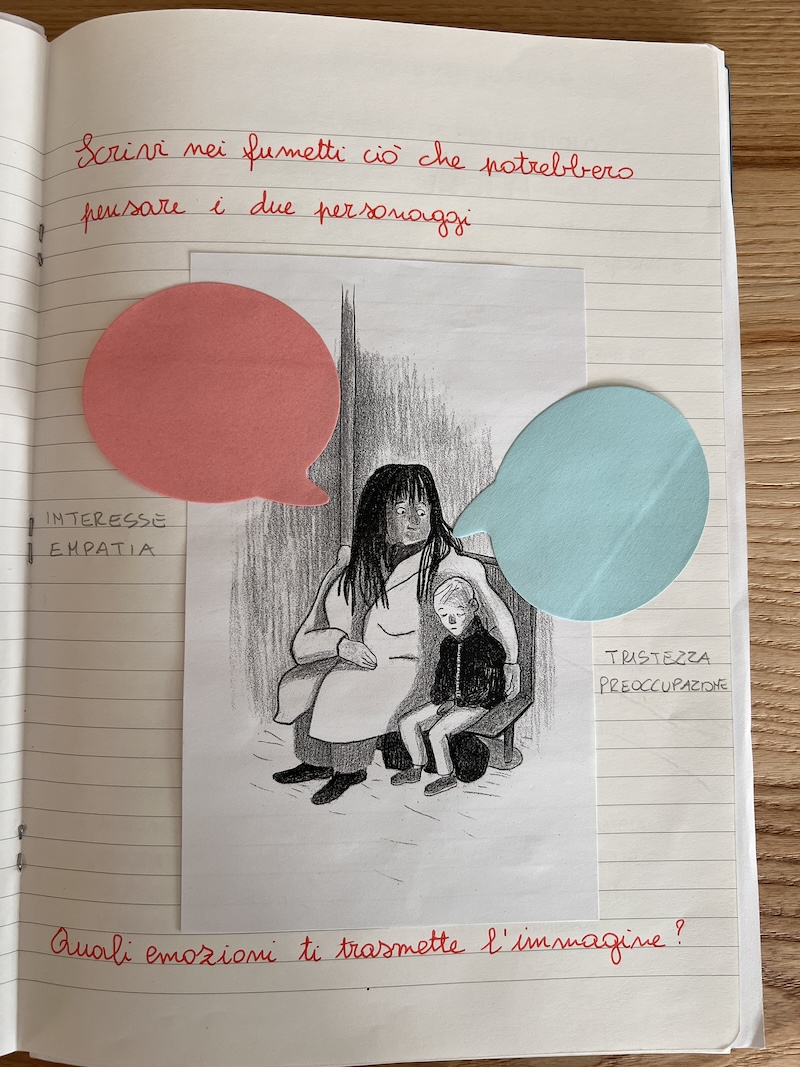 Scrivi nei fumetti ciò che potrebbero
pensare i due personaggi
INTERESSE
EMPATIA
TRISTEZZA
PREOCCUPAZIONE
Quali emozioni ti trasmette l'immagine?